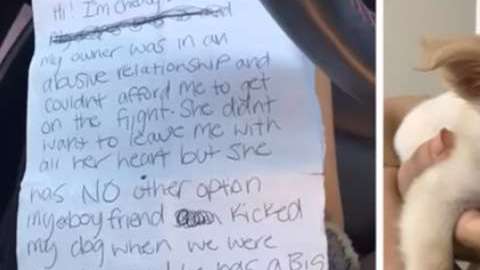 Hi! I'm Chewy
my owner was in an
abusive relationship and
couldnt afford me to get
on the flight. She didnt
want to leave me with
all her heart but she
has NO other option
my boyfriend kicked
my dog when we were
has a BIG